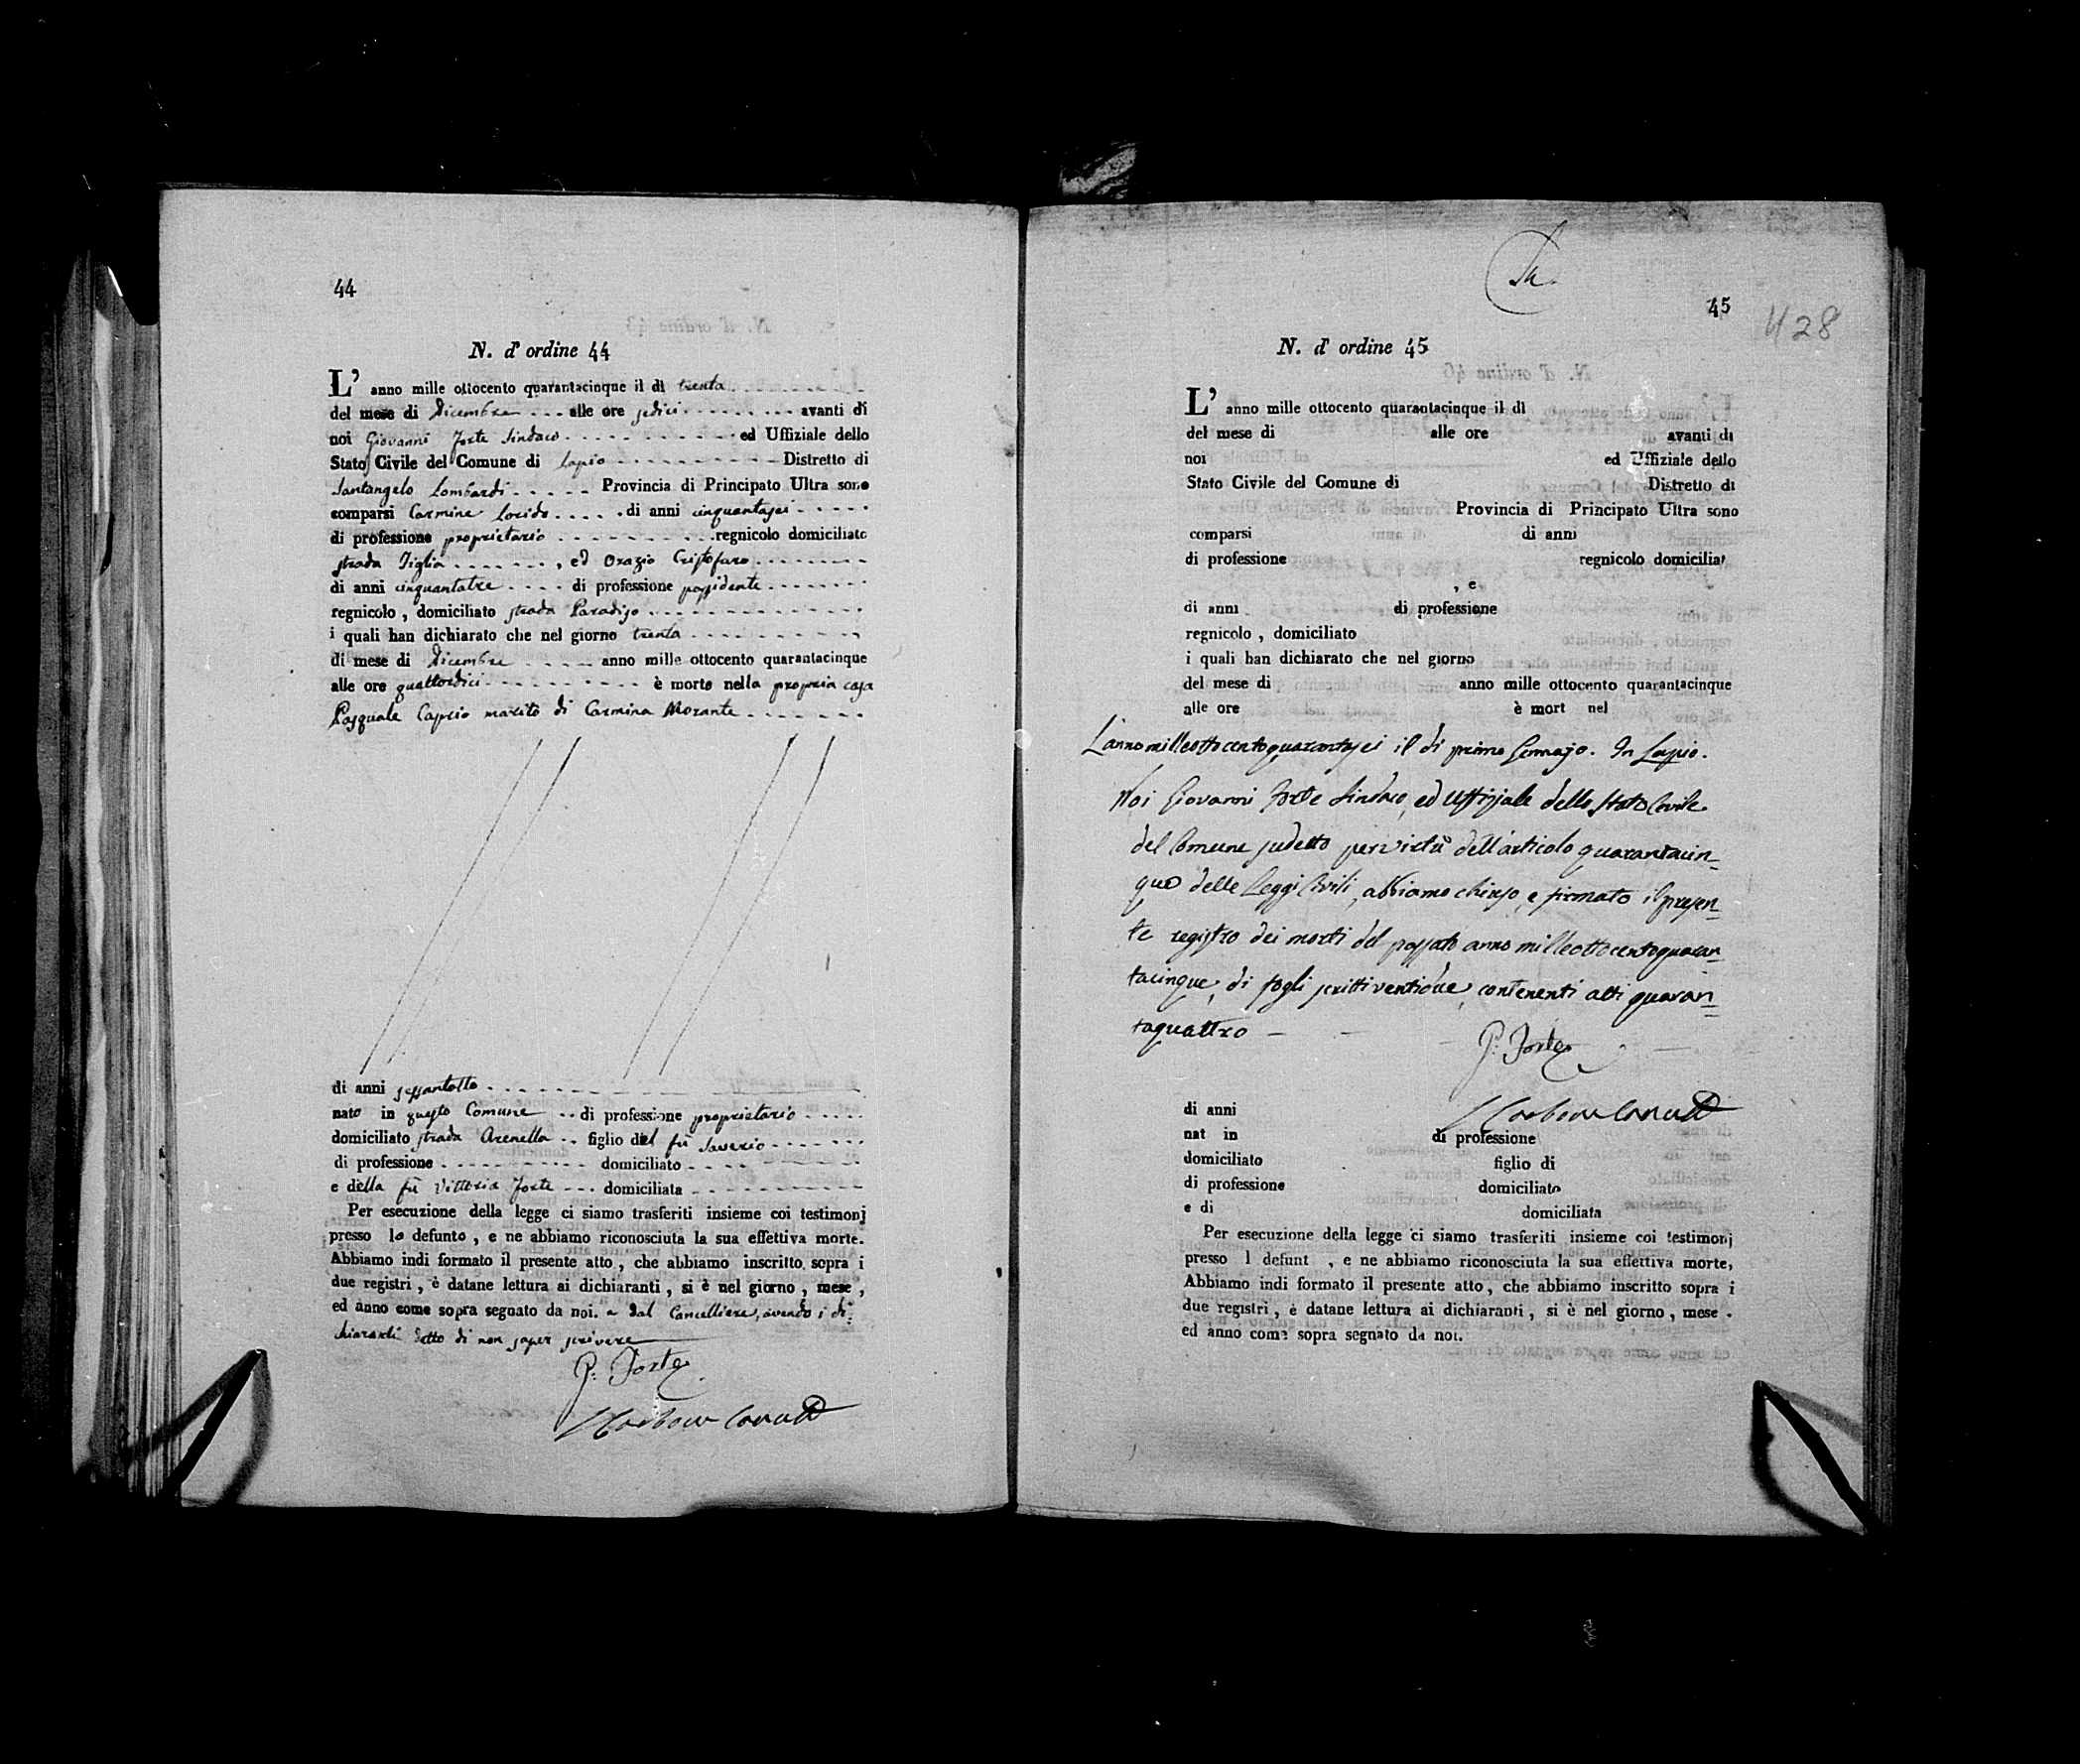 44
N. d' ordine 44
L' anno mille ottocento quarantacinque il dì trenta
del mese di Dicembre alle ore sedici avanti di
noi Giovanni Forte Sindaco ed Uffiziale dello
Stato Civile del Comune di Lapio Distretto di
Santangelo Lombardi Provincia di Principato Ultra sono
comparsi Carmine di anni cinquantasei
di professione proprietario regnicolo domiciliato
strada Tiglia, ed Orazio Cristofaro
di anni cinquantatre di professione possidente
regnicolo, domiciliato strada Paradiso
i quali han dichiarato che nel giorno trenta
di mese di Dicembre anno mille ottocento quarantacinque
alle ore quattordici è morto nella propria casa
Pasquale Caprio marito di Carmina Morante
di anni sessantotto
nato in questo Comune di professione proprietario
domiciliato strada Arenella figlio del fù Saverio
di professione domiciliato
e della fù Vittoria Forte domiciliata
Per esecuzione della legge ci siamo trasferiti insieme coi testimonj
presso lo defunto, e ne abbiamo riconosciuta la sua effettiva morte.
Abbiamo indi formato il presente atto, che abbiamo inscritto sopra i
due registri, è datane lettura ai dichiaranti, si è nel giorno, mese,
ed anno come sopra segnato da noi. e dal Cancelliere, avendo i di=
chiaranti detto di non saper scrivere
G: Forte
45
428
N. d' ordine 45
L' anno mille ottocento quarantacinque il dì
del mese di alle ore avanti di
noi ed Uffiziale dello
Stato Civile del Comune di Distretto di
Provincia di Principato Ultra sono
comparsi di anni
di professione regnicolo domiciliat
, e
di anni di professione
regnicolo, domiciliato
i quali han dichiarato che nel giorno
del mese di anno mille ottocento quarantacinque
alle ore è mort nel
L'anno milleottocentoquarantasei il dì primo Gennajo. In Lapio.
Noi Giovanni Forte Sindaco, ed Uffiziale dello Stato Civile
del Comune sudetto per virtù dell'articolo quarantacin=
que delle Leggi Civili, abbiamo chiuso, e firmato il presen=
te registro dei morti del passato anno milleottocentoquaran=
tacinque, di fogli scritti ventidue, contenenti atti quaran=
taquattro
G: Forte
di anni
nat in di professione
domiciliato figlio di
di professione domiciliato
e di domiciliata
Per esecuzione della legge ci siamo trasferiti insieme coi testimonj
presso l defunt , e ne abbiamo riconosciuta la sua effettiva morte,
Abbiamo indi formato il presente atto, che abbiamo inscritto sopra i
due registri, è datane lettura ai dichiaranti, si è nel giorno, mese.
ed anno come sopra segnato da noi.